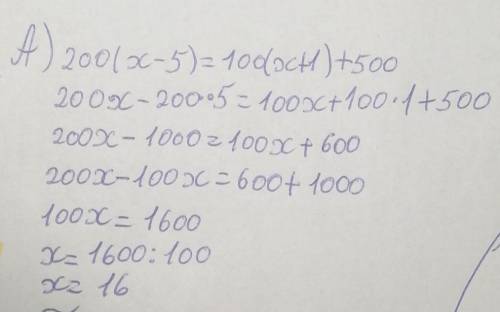 А) 200(x-5)=100(x+1)+500
200x-200•5=100x+100·1+500
200x-1000=100x+600
200x-100x=600+1000
100x=1600
x=1600:100
x=16